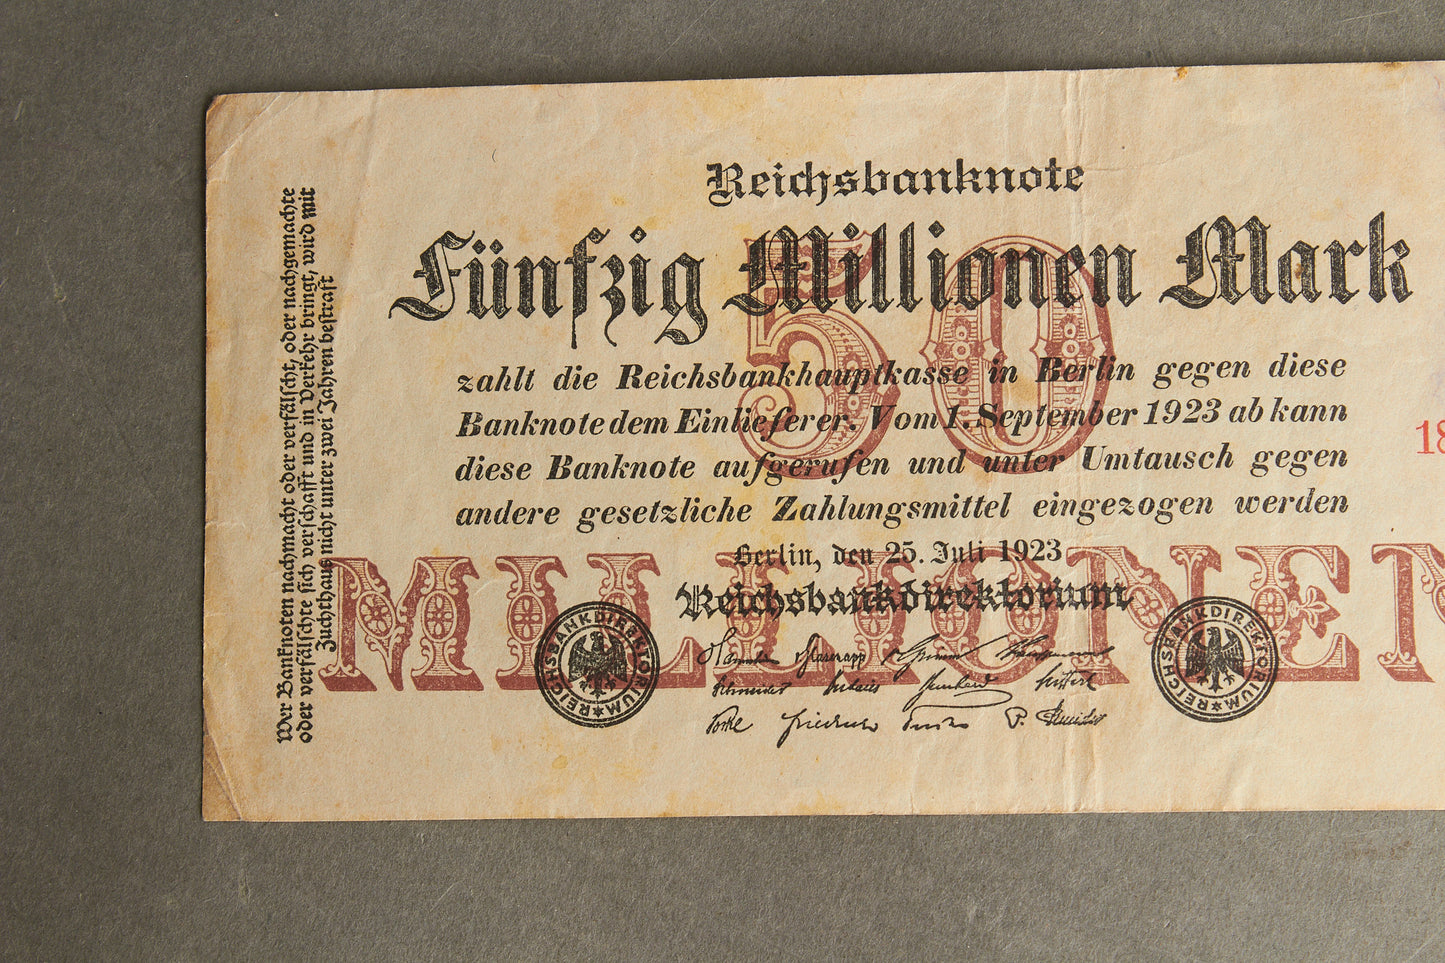 Reichsbanknote
Fünfzig Millionen Mark
50
zahlt die Reichsbankhauptkasse in Berlin gegen diese
Banknote dem Einlieferer. Vom 1. September 1923 ab kann
diese Banknote aufgerufen und unter Umtausch gegen
andere gesetzliche Zahlungsmittel eingezogen werden
Berlin, den 25. Juli 1923
Reichsbankdirektorium
MILLIONEN
REICHSBANKDIREKTORIUM
REICHSBANKDIREKTORIUM
Wer Banknoten nachmacht oder verfälscht, oder nachgemachte
oder verfälschte sich verschafft und in Verkehr bringt, wird mit
Zuchthaus nicht unter zwei Jahren bestraft
18